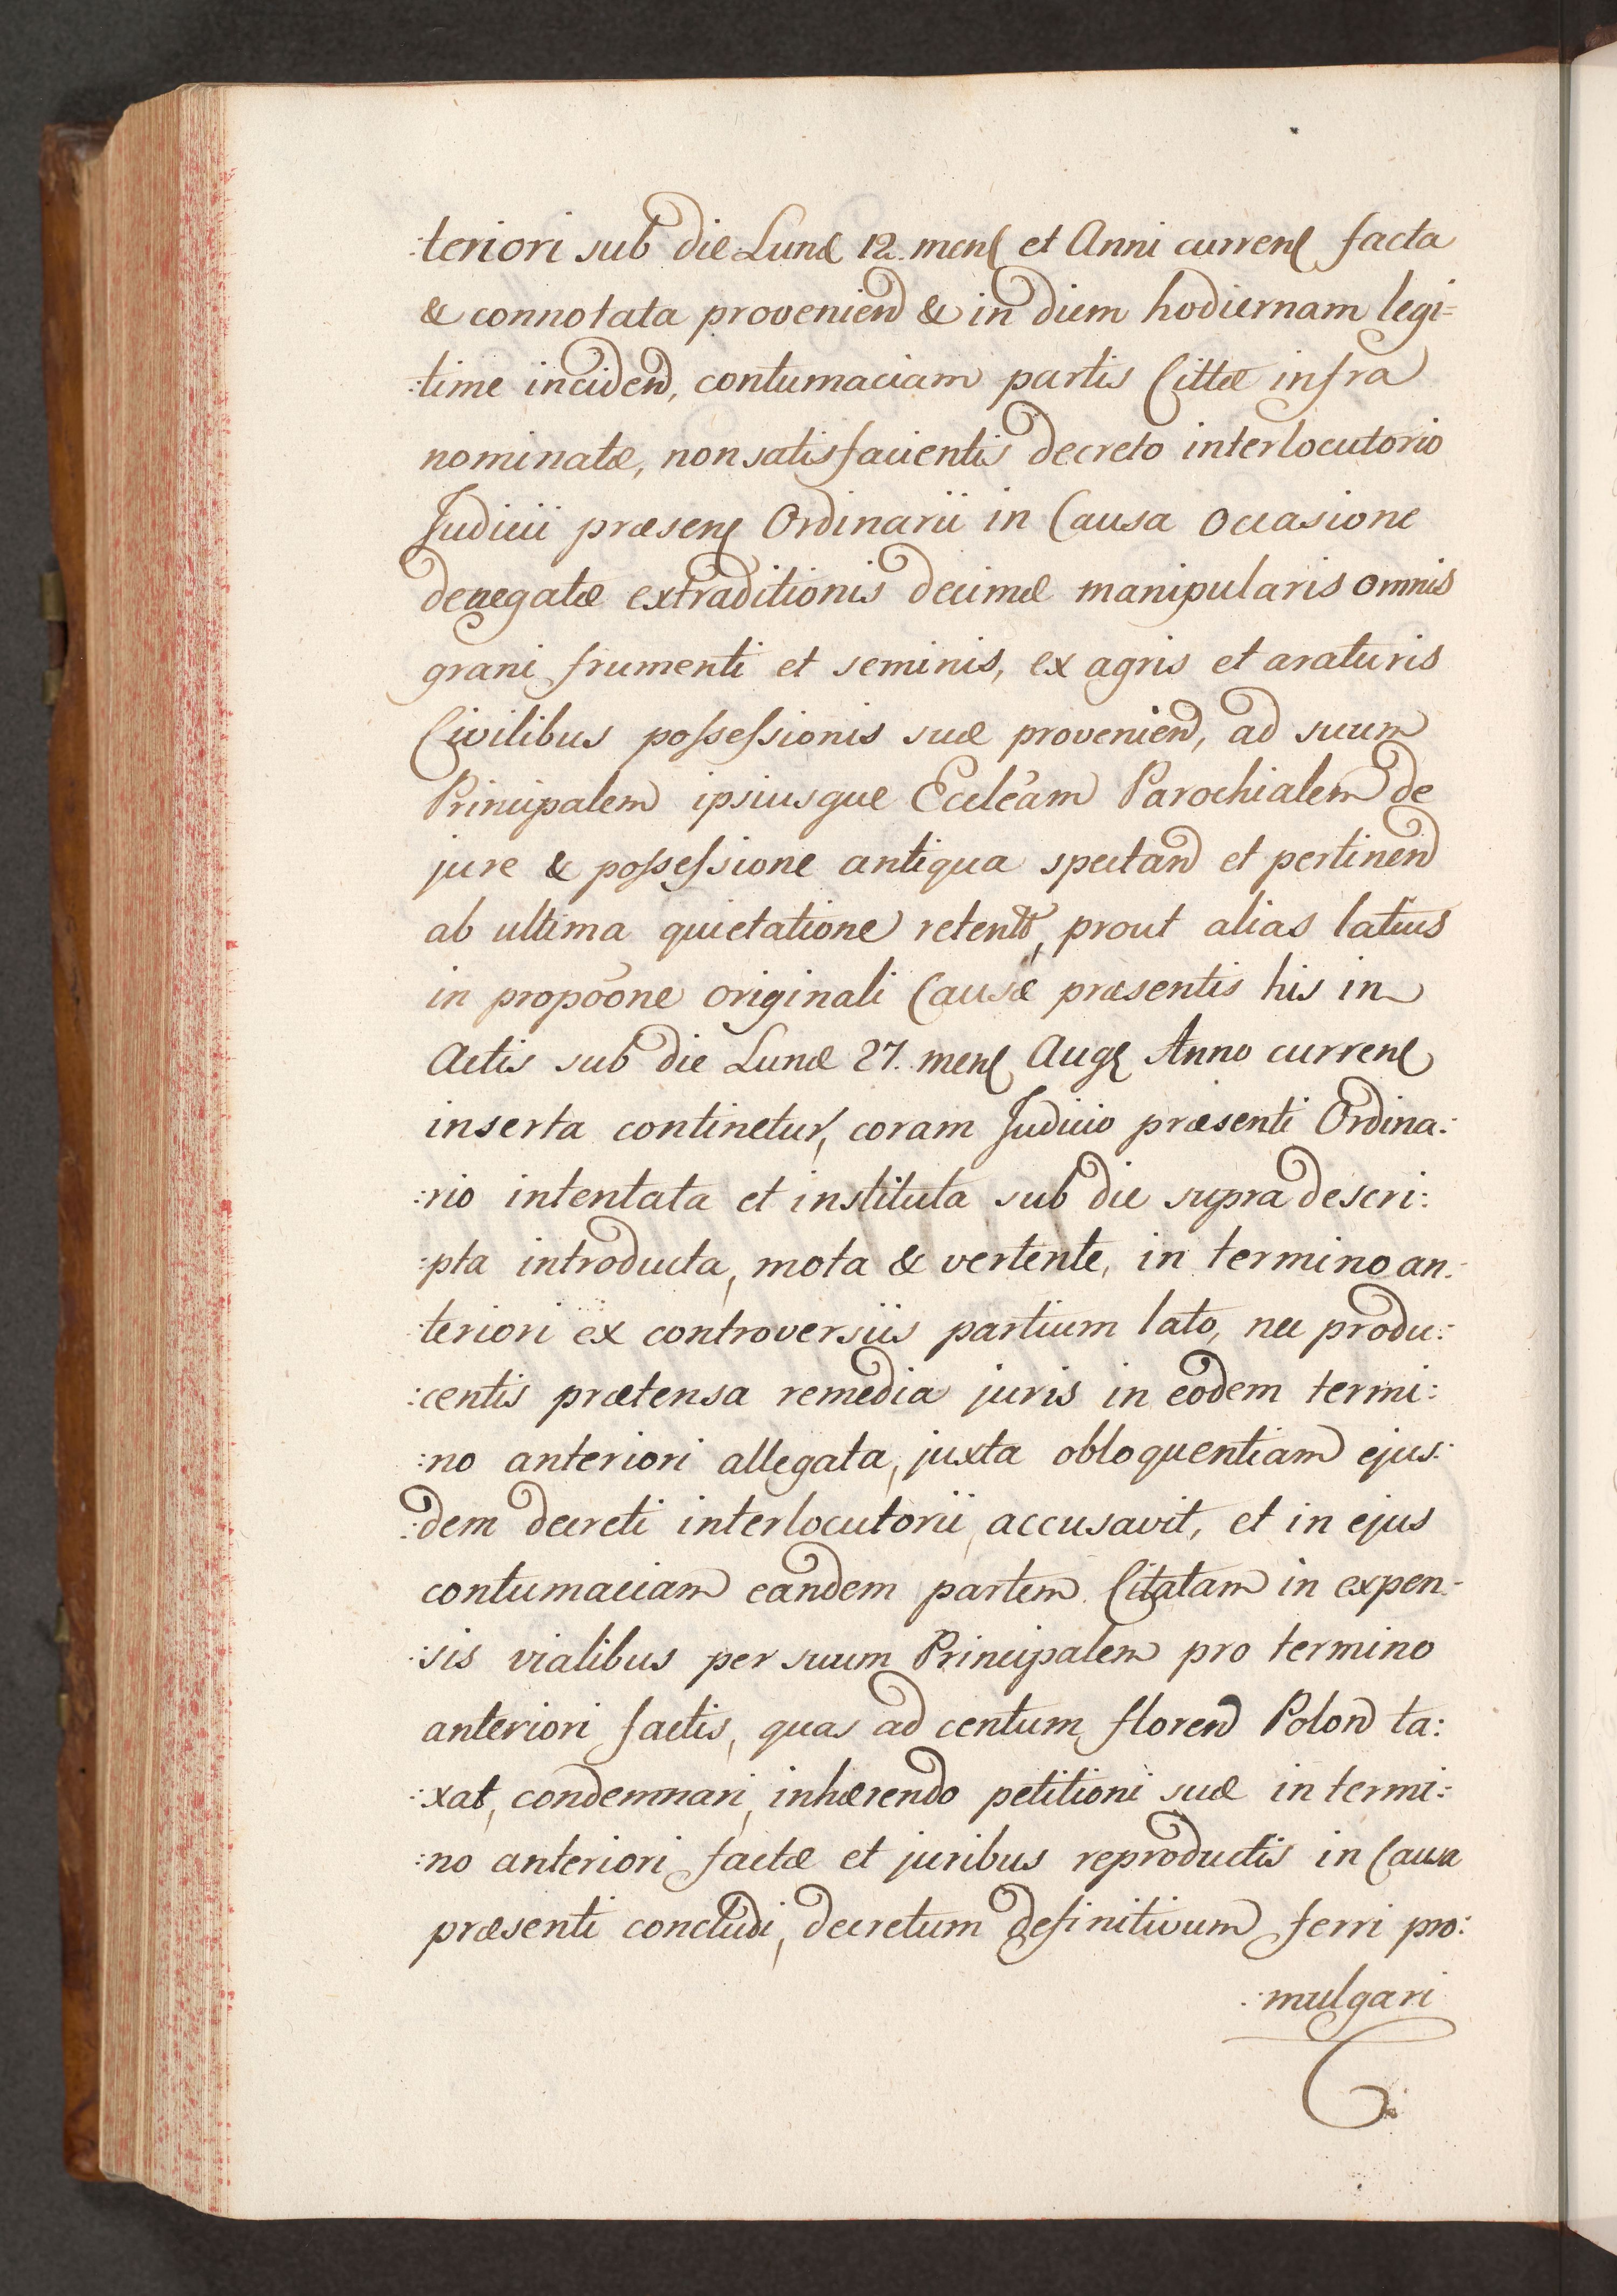 :teriori sub die Lunæ 12. mens et Anni currens facta
& connotata provenien & in diem hodiernam legi=
:time inciden, contumaciam partis Cittæ infra
nominatæ, non satisfacientis decreto interlocutorio
Judicii præsens Ordinarii in Causa occasione
denegatæ extraditionis decimæ manipularis omnis
grani frumenti et seminis, ex agris et araturis
Civilibus possessionis suæ provenien, ad suum
Principalem ipsiusque Eccleam Parochialem de
jure & possessione antiqua spectan et pertinen
ab ultima quietatione retent, prout alias latius
in propoone originali Causæ præsentis his in
Actis sub die Lunæ 27. mens Aug Anno currens
inserta continetur, coram Judicio præsenti Ordina:
:rio intentata et instituta sub die supra descri:
:pta introducta, mota & vertente, in termino an:
:teriori ex controversiis partium lato, nec produ:
:centis prætensa remedia juris in eodem termi:
:no anteriori allegata, juxta obloquentiam ejus:
:dem decreti interlocutorii, accusavit, et in ejus
contumaciam eandem partem Citatam in expen-
:sis vialibus per suum Principalem pro termino
anteriori factis, quas ad centum floren Polon ta:
:xat, condemnari, inhærendo petitioni suæ in termi:
:no anteriori factæ et juribus reproductis in Causa
præsenti concludi, decretum definitivum ferri pro:
:mulgari